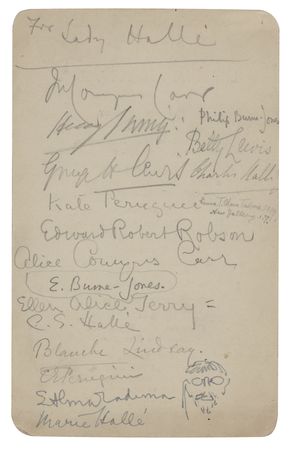 For
Lady Hallé
J. Comyns Carr
Henry Irving.
Philip Burne-Jones
Betty Lewis
George H Lewis
Charles Hallé
Kate Perugini
New Gallery
Edward Robert Robson
Alice Comyns Carr
E. Burne-Jones.
Ellen Alice Terry =
C. E. Hallé
Blanche Lindsay.
C E Perugini
L Alma Tadema
Marie Hallé